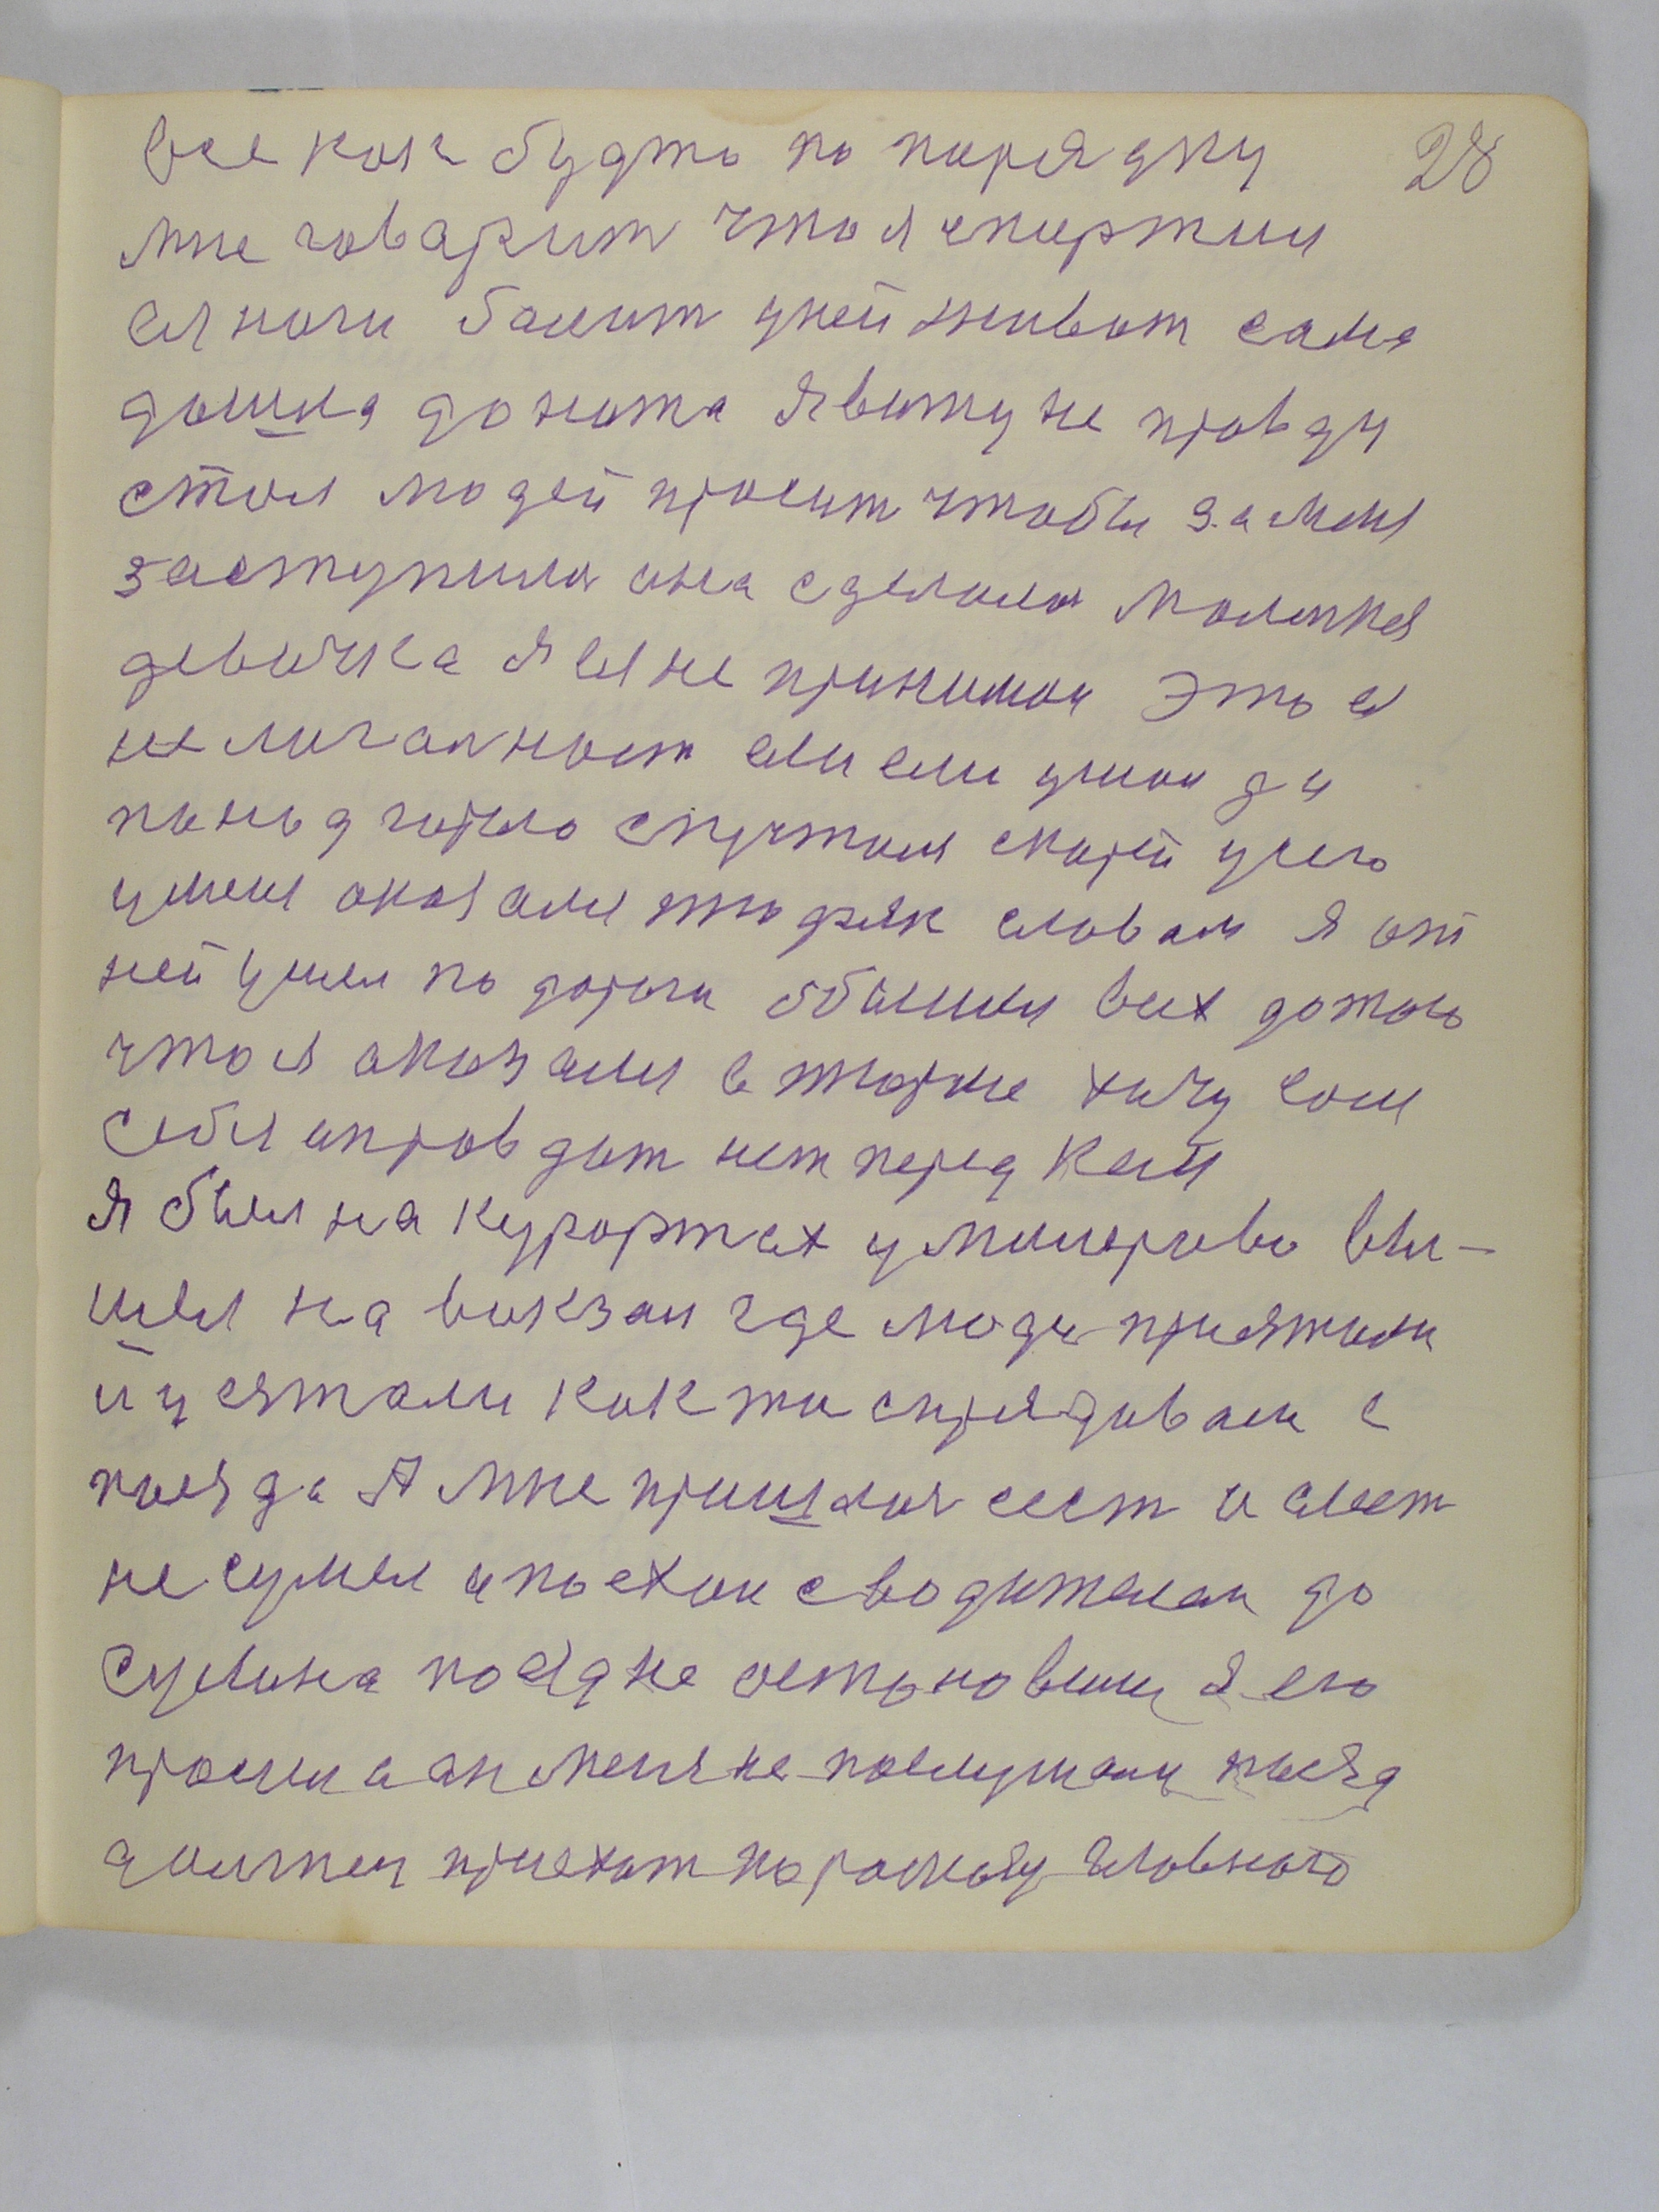 все как будто по порядку 28
мне говарит что я спортил
ея ноги балит уней живот сама
дошла до ножа я вижу не правду
стал людей просит чтобы за меня
заступился она сделала маленкя
девичка я ея не принимал Это ея
не лигалност ели ели ушол да
понод горыло спустился скорей усего
уменя оказался тюфяк словам я от
ней ушел по дороги обошол всех дотого
что я оказался в тюрме хичу сам
себя оправдат нет перед кем
Я был на курортах у минерово вы-
шел на вокзал где люди приятжали
и у езтжали как то спрядавам с
поезда А мне пришлося сест и слест
не сумел и поехал с водителем до
Сулина поезд не астановили я его
просил а он меня не послушали поезд
должен приехат по роспису главного